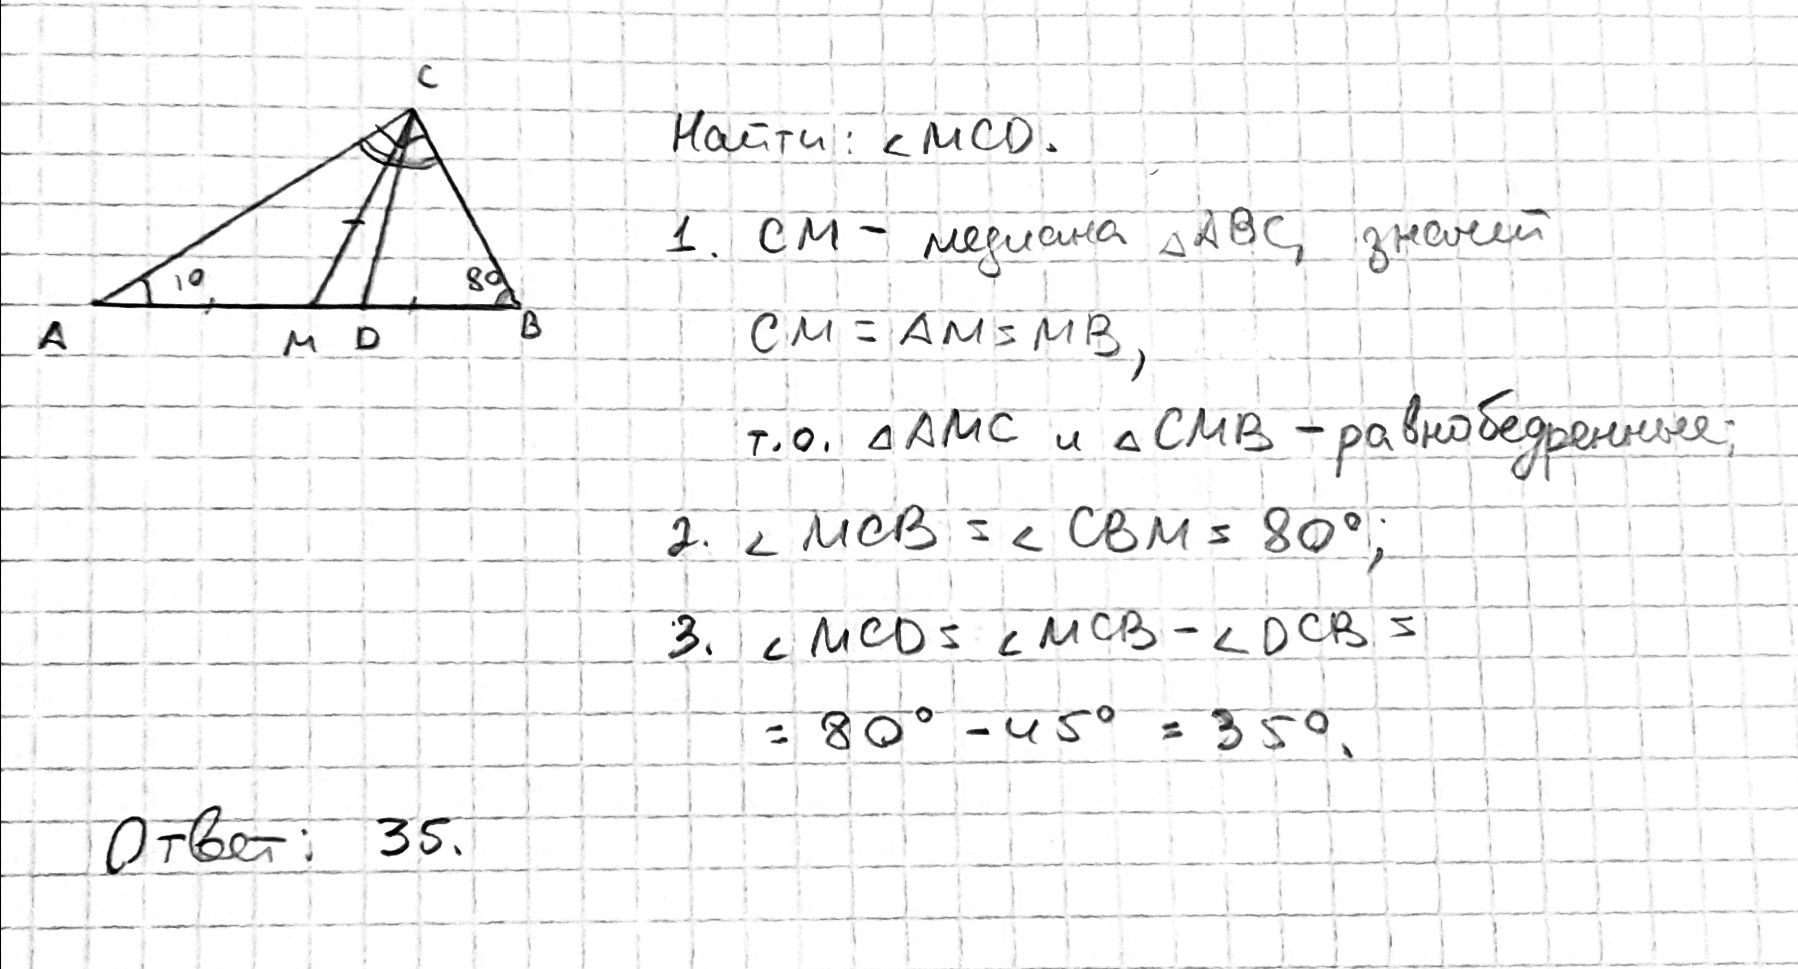 C
Найти: ∠MCD.
1. CM - медиана △ABC, значит
10
80
CM = AM = MB,
A
M
D
B
т.о. △AMC и △CMB - равнобедренные;
2. ∠MCB = ∠CBM = 80°;
3. ∠MCD = ∠MCB - ∠DCB =
= 80° - 45° = 35°.
Ответ: 35.